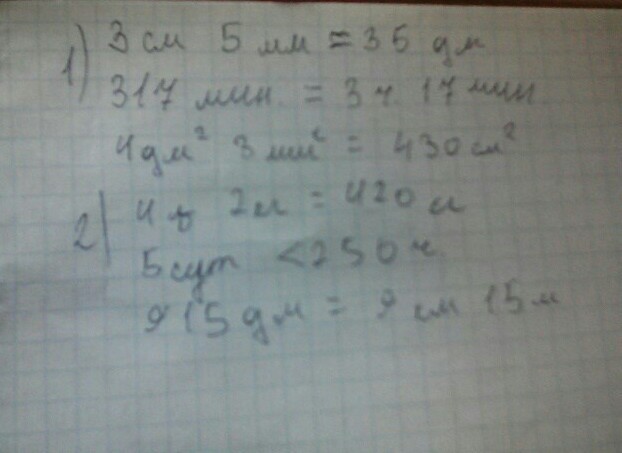 1) 3 см 5 мм = 35 дм
317 мин. = 3 ч. 17 мин
4 дм² 3 мм² = 430 см²
2) 4 2 = 420
5 сут < 250 ч.
915 дм = 9 см 15 м